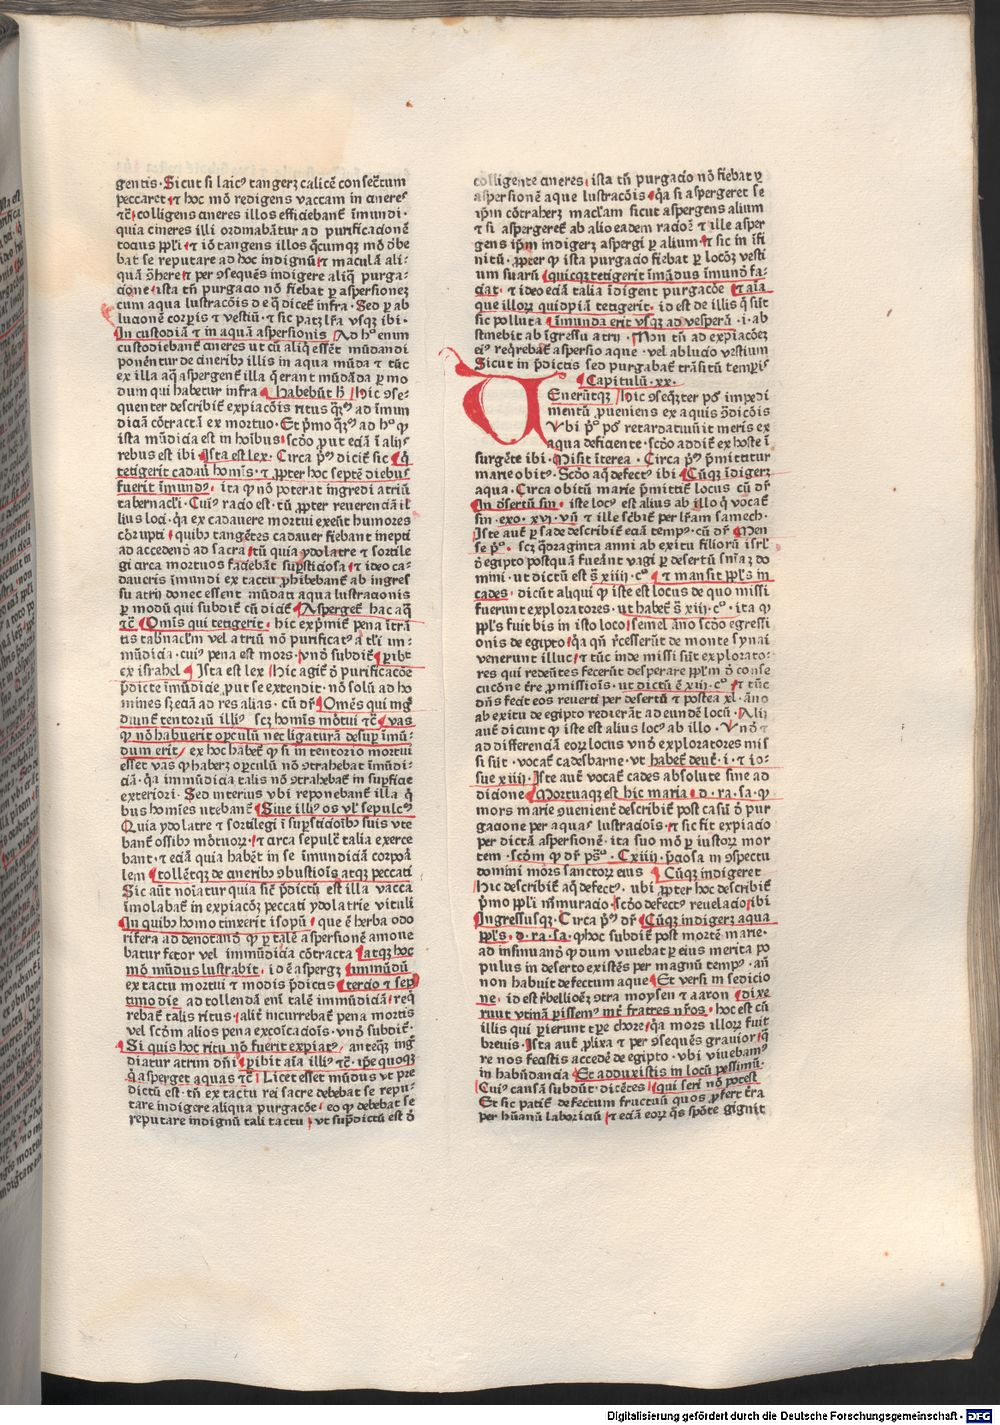 gentis. Sicut si laicꝰ tangerꝫ calicē consecͣtum
peccaret ⁊ hoc mō redigens vaccam in cineres
⁊c̄ colligens cineres illos efficiebant̄ īmundi.
quia cineres illi ordinabātur ad purificacionē
tocius ppl̄i ⁊ iō tangens illos q̄cumqꝫ mō d̄be
bat se reputare ad hoc indignū ⁊ maculā ali
quā ꝯ̄here ⁊ per ꝯsequēs indigere aliq̄ purga
cione. ista tn̄ purgacio nō fiebat ꝑ aspersionē
cum aqua lustracōis de q̄ dicet̄ infra. Sed ꝑ ab
lucionē corꝑis ⁊ vestiū. ⁊ sic patꝫ lr̄a vsqꝫ ibi.
In custodiā ⁊ in aquā aspersionis Ad hͦ enim
custodiebant̄ cineres ut cū aliqͥ essēt mūdandi
ponēntur de cineribꝰ illis in aqua mūda ⁊ tūc
ex illa aq̄ aspergent̄ illa q̄ erant mūdāda ꝑ mo
dum qui habetur infra habebūt h̄ Hic ꝯse
quenter describit̄ expiacōis ritus q̄ꝫͣ ad īmun
diciā cōtractā ex mortuo. Et pͥmo q̄ꝫͣ ad hͦ ꝙ
ista mūdicia est in hoībus. scd̄o ꝓut eciā ī alijs
rebus est ibi Ista est lex. Circa pͫ dicit̄ sic qͥ
tetigerit cadauͤ homīs. ⁊ ꝓpter hoc septē diebus
fuerit īmundꝰ. ita ꝙ nō poterat ingredi atriū
tabernacl̄i. Cuiꝰ racio est. tū ꝓpter reuerenciā il
lius loci. qͥa ex cadauere mortui exeūt humores
corrupti quibꝫ tangētes cadauer fiebant inepti
ad accedendū ad sacra tū quia ydolatre ⁊ sortile
gi circa mortuos faciebāt suꝑsticiosa ⁊ ideo ca
daueris īmundi ex tactu ꝓhibebant̄ ab ingres
su atrij donec essent mūdati aqua lustracionis
ꝑ modū qui subdit̄ cū dicit̄ Asperget̄ hac aq̄
⁊c̄ Omīs qui tetigerit. hic exprimit̄ pena ītrā
tis tabnaclm̄ vel atriū nō purificati a tl̄i im
mūdicia. cuiꝰ pena est mors. vnͦ subdit̄ ꝑibit
ex israhel Ista est lex Hic agit̄ de purificacōe
p̄dicte īmūdicie put se extendit. nō solū ad ho
mines sꝫ eciā ad res alias. cū dr̄ Omēs qui ingͥ
diunt̄ tentoriū illiꝰ scꝫ homīs mōtui ⁊c̄ vas
qͥ nō habuerit opculū nec ligaturā desuꝑ īmū
dum erit ex hoc habet̄ ꝙ si in tentorio mortui
esset vas ꝙ haberꝫ opculū nō ꝯtrahebat īmūdi
ciā. qͥa immūdicia talis nō ꝯtrahebat̄ in suꝑficie
exteriori. Sed interius vbi reponebant̄ illa qͥ
bus homīes utebant̄ Siue illiꝰ os vl̄ sepulcͫ
Quia ydolatre ⁊ sortilegi ī suꝑsticiōibꝫ suis vte
bant̄ ossibꝫ mōtuorꝝ. ⁊ circa sepulcͣ talia exerce
bant. ⁊ eciā quia habēt in se īmundiciā corpoͣ
lem tollētqꝫ de cineribꝫ ꝯbustiōis atqꝫ peccati
Sic aūt noīatur quia sic̄ p̄dictū est illa vacca
īmolabat̄ in expiacōꝫ peccati ydolatrie vituli
In quibꝫ homo tinxerit isopū que ē herba odo
rifera ad denotand̄ ꝙ ꝑ talē aspersionē amoue
batur fetor vel immūdicia cōtracta atqꝫ hoc
mō mūdus lustrabit. id ē aspergꝫ immūdū
ex tactu mortui ⁊ modis p̄dictis tercio ⁊ sep
timo die ad tollendā eni̅ talē immūdiciā req̄
rebat̄ talis ritus. alit̄ incurrebat̄ pena mortis
vel scd̄m alios pena excōicacōis. vnͦ subdit̄.
Si quis hoc ritu nō fuerit expiatꝰ anteqꝫ ingͥ
diatur atrium dn̄i ꝑibit aīa illiꝰ ⁊c̄. ip̄e quoqꝫ
qͥ asperget aquas ⁊c̄ Licet esset mūdus vt pre
dictū est. tn̄ ex tactu rei sacre debebat se repu
tare indigere aliqua purgacōe. eo ꝙ debebat se
reputare indignū tali tactu vt sup̄dictū est de
colligente cineres. ista tn̄ purgacio nō fiebat ꝑ
aspersionē aque lustracōis. qͥa si aspergeret se
ip̄m cōtraherꝫ macl̄am sicut aspergens alium
⁊ si aspergeret̄ ab alio eadem racio ē ⁊ ille asper
gens ip̄m indigerꝫ aspergi ꝑ alium ⁊ sic in īfi
nitū. ꝓpter ꝙ ista purgacio fiebat ꝑ locōꝫ vesti
um suarū quicqͥ tetigerit īmūdus īmundū fa
ciet. ⁊ ideo eciā talia īdigent purgacōe ⁊ aīa
que illorꝝ quidpiā tetigerit. id est de illis q̄ sūt
sic polluta īmunda erit vsqꝫ ad vesperā. i. ab
stinebit ab īgressu atrij. Non tn̄ ad expiacōeꝫ
eiꝰ reqͥrebat̄ aspersio aque. vel ablucio vestium
Sicut in p̄dictis sed purgabat̄ trāsitū temꝑis
Capitulū. xx.
VEnerūtqꝫ Hic ꝯseqͥter poīt̄ impedi
mentū ꝓueniens ex aquis ꝯ̄dicōis
Vbi pͥͦ poīt̄ retardatiuū itineris ex
aqua deficiente. scd̄o addit̄ ex hoste ī
surgēte ibi. Misit īterea. Circa pͫ p̄mittitur
marie obitꝰ. Scd̄o aq̄ defectꝰ ibi Cūqꝫ īdigerꝫ
aqua. Circa obitū marie p̄mittit̄ locus cū dr̄
In d̄sertū sin. iste locꝰ est alius ab illo qͥ vocat̄
sin. exo. xvi. vn̄ ⁊ ille scͥbit̄ per lr̄am samech.
Iste aut̄ ꝑ sade describit̄ eciā tempꝰ. cū dr̄ Men
se pͦ. scꝫ q̄draginta anni ab exitu filiorū isrl̄
de egipto postquā fuerāt vagi ꝑ desertū sn̄ia do
mini. ut dictū est s̄ xiiii. cͦ ⁊ mansit ppl̄s in
cades. dicūt aliqui ꝙ iste est locus de quo missi
fuerunt exploratores. ut habet̄ s̄ xiij. cͦ. ita ꝙ
ppl̄s fuit bis in isto loco. semel āno scd̄o egressi
onis de egipto. qͥa qn̄ recesserūt de monte synai
venerunt illuc ⁊ tūc inde missi sūt explorato
res qui redeūtes fecerūt desperare ppl̄m de conse
cucōne tr̄e ꝓmissiōis. ut dictū ē xiij. cͦ ⁊ tūc
dn̄s fecit eos reuerti per desertū ⁊ postea xl. āno
ab exitu de egipto redierāt ad eundē locū. Alij
aut̄ dicunt ꝙ iste est alius locꝰ ab illo. Vnͦ ⁊
ad differenciā eorꝝ locus vnͦ exploratores mis
si sūt. vocat̄ cadesbarne. vt habet̄ deut̄. i. ⁊ io
sue xiiij. Iste aut̄ vocat̄ cades absolute sine ad
dicione Mortuaqꝫ est hic maria. d. ra. sa. ꝙ
mors marie ꝯuenient̄ describit̄ post casū de pur
gacione per aquaꝫ lustraciōis. ⁊ sic fit expiacio
per dictā aspersionē. ita suo mō ꝑ iustorꝝ mor
tem. scd̄m qͥ dr̄ psͣ. Cxiiij. p̄ciosa in ꝯspectu
domini mors sanctorꝝ eius Cūqꝫ indigeret
Hic describit̄ aq̄ defectꝰ. ubi ꝓpter hoc describit̄
pͥmo ppl̄i mͥmuracio. scd̄o defectꝰ reuelacio ibi
Ingressusqꝫ. Circa pͫ dr̄ Cūqꝫ indigerꝫ aqua
ppl̄s. d. ra. sa. qͥ hoc subdit̄ post mortē marie.
ad insinuandū ꝙ dum viuebat ꝑ eius merita po
pulus in deserto existēs per magnū tempꝰ. aū
non habuit defectum aque Et versi in sedicio
nē. id est r̄bellioēꝫ ꝯtra moysen ⁊ aaron dixe
runt vtinā ꝑissemꝰ int̄ fratres nr̄os. hoc est cū
illis qui ꝑierunt tꝑe chore. qͥa mors illorꝝ fuit
breuis. Ista aut̄ ꝓlixa ⁊ per ꝯsequēs grauior. qͣ
re nos fecistis accedē de egipto. vbi viuebamꝰ
in habūdancia Et adduxistis in locū pessimū.
Cuiꝰ causā subdūt. dicētes qui seri nō potest
Et sic patit̄ defectum fructuū quos ꝓfert tr̄a
per hūanū laboriciū ⁊ eciā eorꝝ qͦs spōte gignit
Digitalisierung gefördert durch die Deutsche Forschungsgemeinschaft - DFG